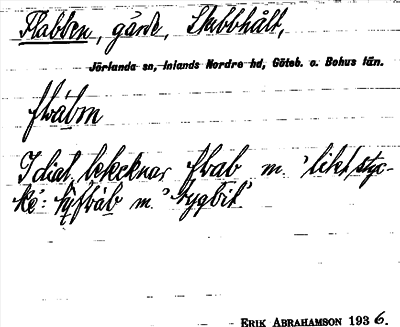 Flabben, gärde, Stubbhält,
Jörlanda sn, Inlands Nordre hd, Göteb. o. Bohus län.
I dial. betecknar flab m. 'litet styc-
ke':  m. 'tygbit'
ERIK ABRAHAMSON 1936.